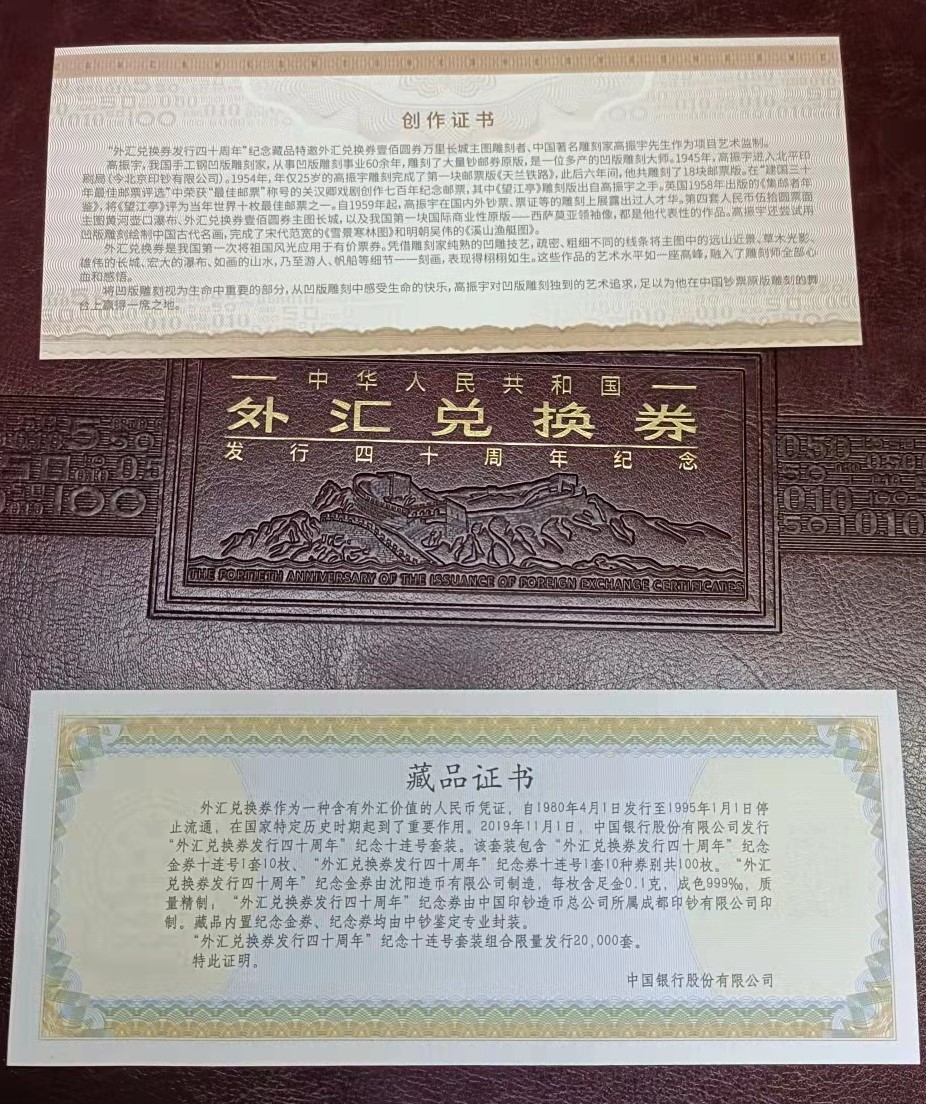 创作证书
“外汇兑换券发行四十周年”纪念藏品特邀外汇兑换券壹佰圆券万里长城主图雕刻者、中国著名雕刻家高振宇先生作为项目艺术监制。
高振宇，我国手工钢凹版雕刻家，从事凹版雕刻事业60余年，雕刻了大量钞邮券原版，是一位多产的凹版雕刻大师。1945年，高振宇进入北平印
刷局（今北京印钞有限公司）。1954年，年仅25岁的高振宇雕刻完成了第一块邮票版《天兰铁路》，此后六年间，他共雕刻了18块邮票版。在“建国三十
年最佳邮票评选”中荣获“最佳邮票”称号的关汉卿戏剧创作七百年纪念邮票，其中《望江亭》雕刻版出自高振宇之手。英国1958年出版的《集邮者年
鉴》，将《望江亭》评为当年世界十枚最佳邮票之一。自1959年起，高振宇在国内外钞票、票证等的雕刻上展露出过人才华。第四套人民币伍拾圆票面
主图黄河壶口瀑布、外汇兑换券壹佰圆券主图长城，以及我国第一块国际商业性原版——西萨莫亚领袖像，都是他代表性的作品。高振宇还尝试用
凹版雕刻绘制中国古代名画，完成了宋代范宽的《雪景寒林图》和明朝吴伟的《溪山渔艇图》。
外汇兑换券是我国第一次将祖国风光应用于有价票券。凭借雕刻家纯熟的凹雕技艺，疏密、粗细不同的线条将主图中的远山近景、草木光影、
雄伟的长城、宏大的瀑布、如画的山水，乃至游人、帆船等细节一一刻画，表现得栩栩如生。这些作品的艺术水平如一座高峰，融入了雕刻师全部心
血和感悟。
将凹版雕刻视为生命中重要的部分，从凹版雕刻中感受生命的快乐，高振宇对凹版雕刻独到的艺术追求，足以为他在中国钞票原版雕刻的舞
台上赢得一席之地。
中华人民共和国
外汇兑换券
发行四十周年纪念
THE FORTIETH ANNIVERSARY OF THE ISSUANCE OF FOREIGN EXCHANGE CERTIFICATES
藏品证书
外汇兑换券作为一种含有外汇价值的人民币凭证，自1980年4月1日发行至1995年1月1日停
止流通，在国家特定历史时期起到了重要作用。2019年11月1日，中国银行股份有限公司发行
“外汇兑换券发行四十周年”纪念十连号套装。该套装包含“外汇兑换券发行四十周年”纪念
金券十连号1套10枚、“外汇兑换券发行四十周年”纪念券十连号1套10种券别共100枚。“外汇
兑换券发行四十周年”纪念金券由沈阳造币有限公司制造，每枚含足金0.1克，成色999‰，质
量精制；“外汇兑换券发行四十周年”纪念券由中国印钞造币总公司所属成都印钞有限公司印
制。藏品内置纪念金券、纪念券均由中钞鉴定专业封装。
“外汇兑换券发行四十周年”纪念十连号套装组合限量发行20,000套。
特此证明。
中国银行股份有限公司